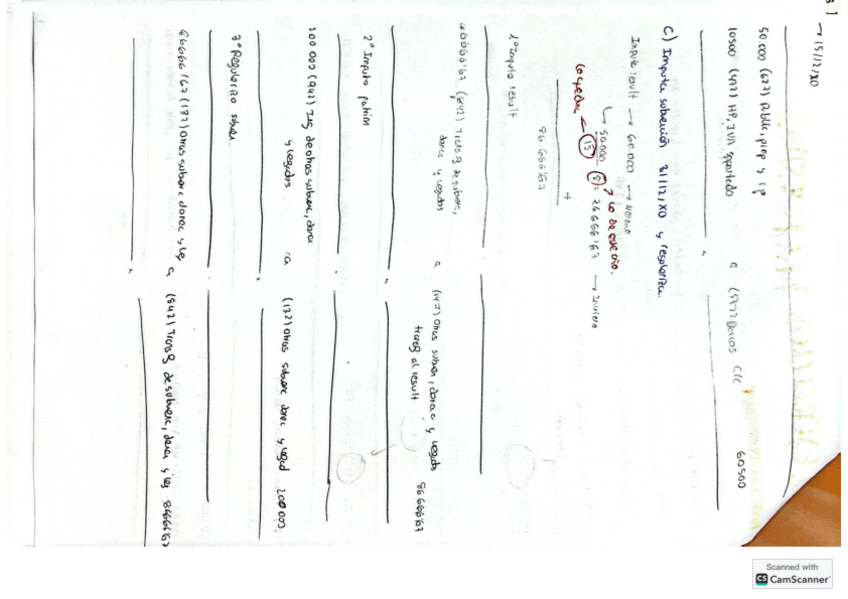 → 15/12/X0
50.000 (627) Public, prop y rp
10500 (472) HP, IVA soportado a (572) Bancos c/c 60500
C) Imputa subvención 31/12/X0 y regulariza.
Impute result → 60.000 → Verano
↳ 50.000
15
8 = 26 666'67 → Invierno
? Lo de este año.
Lo q queda ←
+
86 666'67
1º Imputo result
(842) Transf de subven,
donac y legados a (747) Otras subven, donac y legados
transf al result 86 666'67
2º Imputo patrim
200 000 (942) Ing de otras subven, donac
y legados a (132) Otras subvenc donac y legad 200 000
3º Regularizo subven
(132) Otras subvenc donac y leg a (842) Transf de subvenc, donac y leg
Scanned with
CS CamScanner